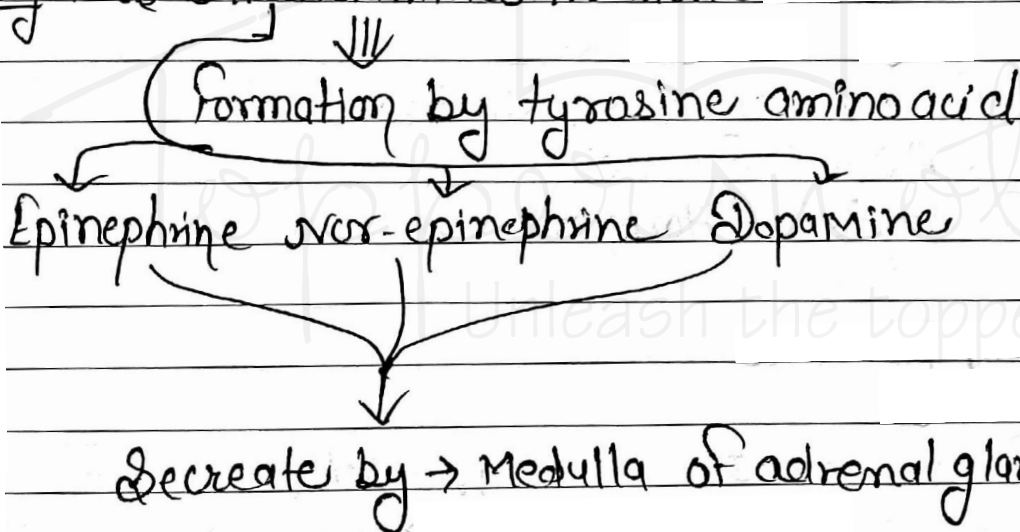 Formation by tyrosine amino acid
Epinephrine Nor-epinephrine Dopamine
Unleash the toppe
Secreate by → Medulla of adrenal glan